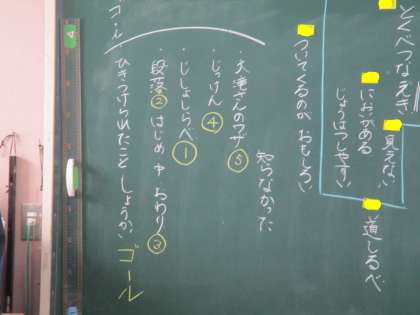 とくべつなえき
見えない
においがある
じょうはつしやすい
道しるべ
ついてくるのがおもしろい
知らなかった
・大滝さんのワザ⑤
・じっけん④
・じしょしらべ①
・段落②はじめ中おわり③
ひきつけられたことしょうかい ゴール
ゴール